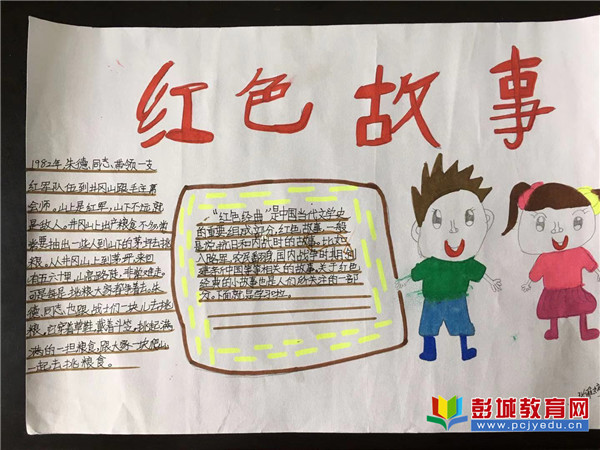 红色故事
1982年朱德同志带领一支
红军队伍到井冈山跟毛主席
会师,山上是红军,山下不远就
是敌人。井冈山上出产粮食不多,常
常要抽出一些人到山下的茅坪去挑
粮。从井冈山上到茅坪,来回
有五六十里,山高路陡,非常难走。
可是每是挑粮大家都争着去。朱
德同志也跟战士们一块儿去挑
粮。他穿着草鞋,戴着斗笠,挑起满
满的一担粮食,跟大家一块爬山
一起去挑粮食。
"红色经典"是中国当代文学史
的重要组成部分,红色故事,一般
是
入脍
建
经典的小故事也是人们所关注的一部
分,下面就是学习啦
彭城教育网
www.pcjyedu.cn